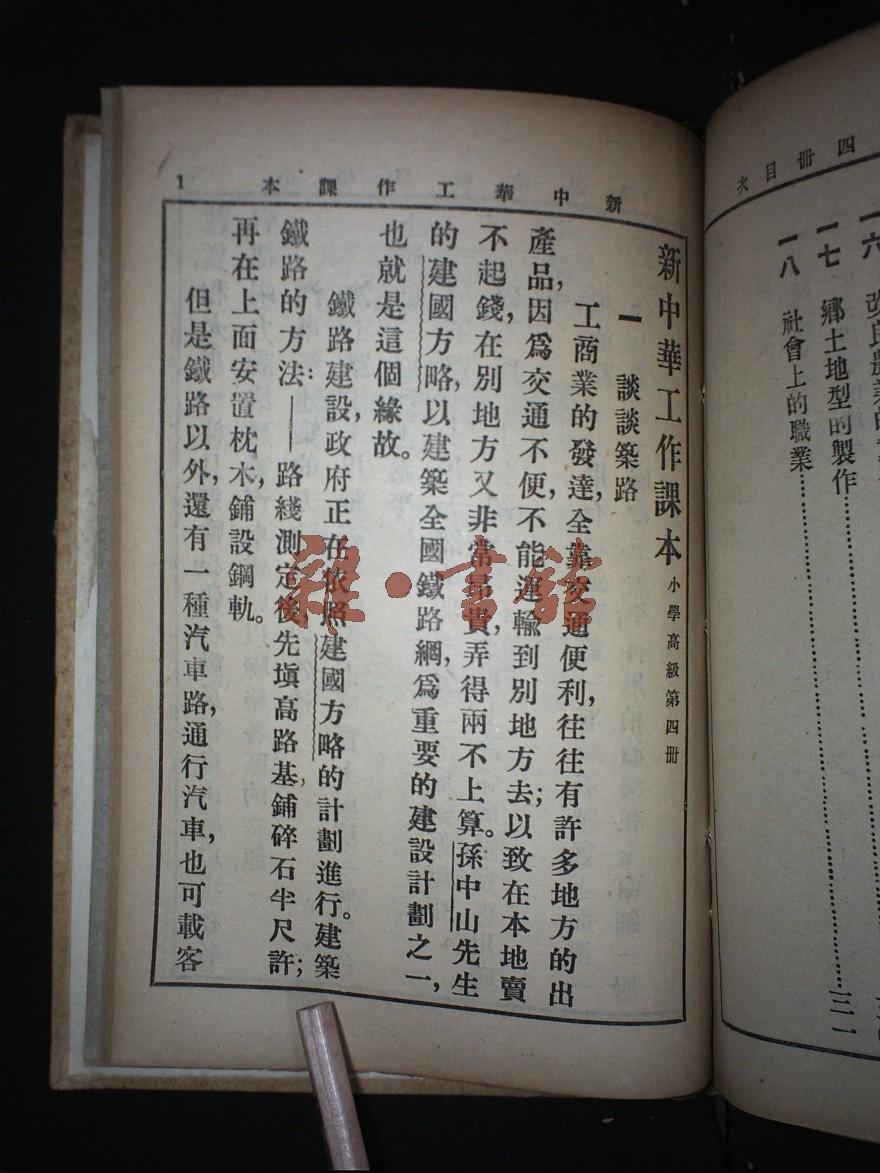 四冊目次
一六
一七　鄉土地型的製作……………
一八　社會上的職業……………三一
新中華工作課本　1
新中華工作課本　小學高級第四冊
一　談談築路
工商業的發達，全靠交通便利，往往有許多地方的出
產品，因爲交通不便，不能運輸到別地方去；以致在本地賣
不起錢，在別地方又非常昂貴，弄得兩不上算。孫中山先生
的建國方略，以建築全國鐵路網，爲重要的建設計劃之一，
也就是這個緣故。
鐵路建設，政府正在依照建國方略的計劃進行。建築
鐵路的方法：——路綫測定後，先塡高路基，鋪碎石半尺許；
再在上面安置枕木，鋪設鋼軌。
但是鐵路以外，還有一種汽車路，通行汽車，也可載客
雜·書館